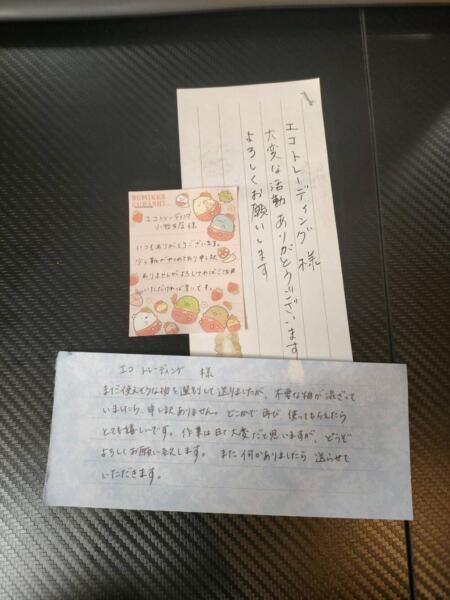 エコトレーディング 様
大変な活動ありがとうございます
よろしくお願いします
SUMIKKO
GURASHI
エコトレーディング
小野支店 様
いつもありがとうございます。
少し靴がやつめており申し訳
ありませんがよろしければご活用
いただければ幸いです。
エコ トレーディング 様
まだ使えそうな物を選別して送りましたが、不要な物が混ざって
いましたら、申し訳ありません。どこかで再び 使ってもらえたら
とても嬉しいです。作業は日々大変だと思いますが、どうぞ
よろしくお願い致します。また何かありましたら 送らせて
いただきます。